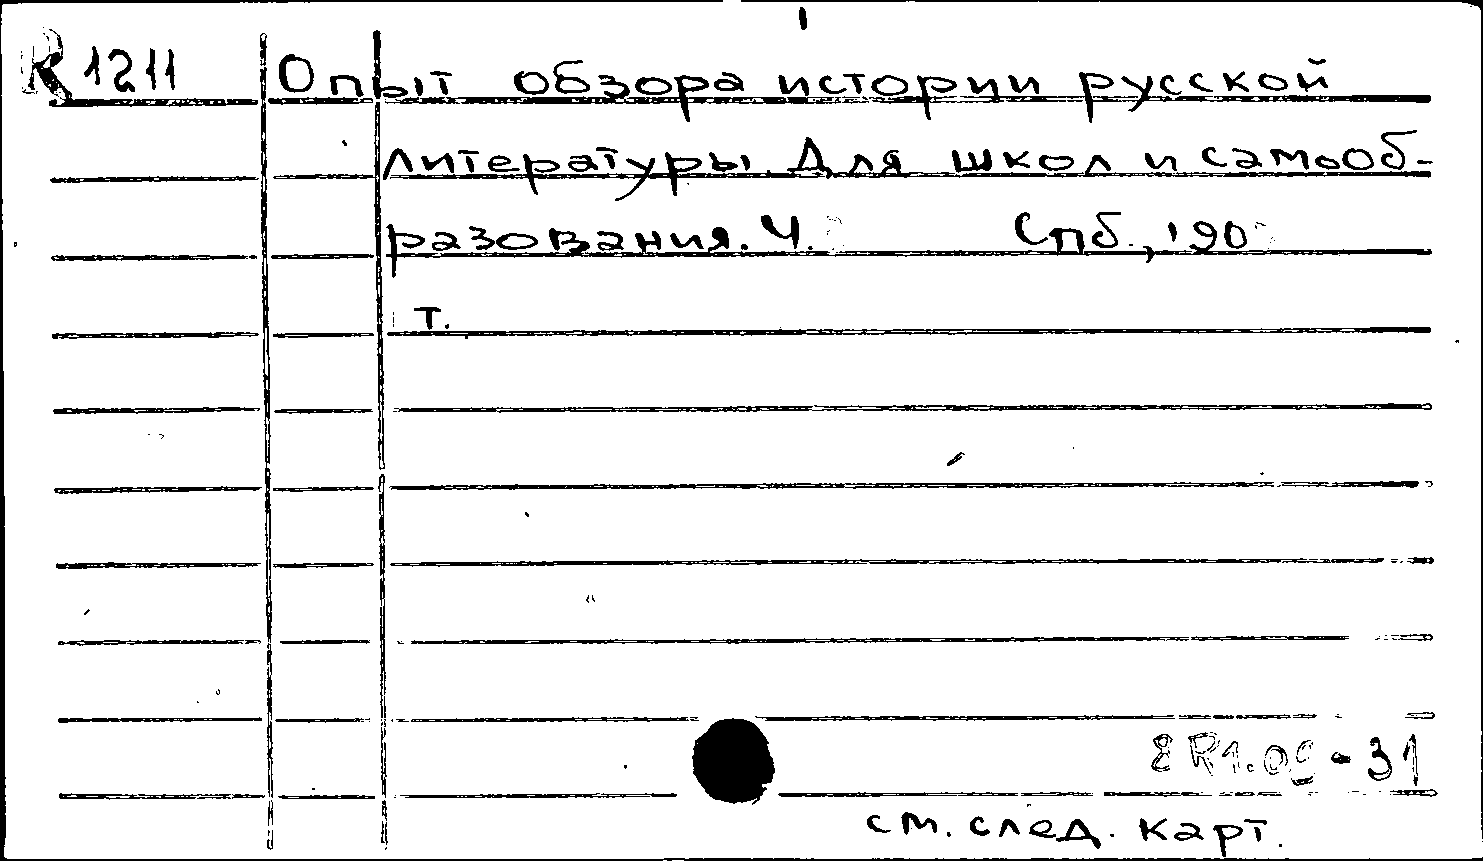 R 1211 Опыт обзора истории русской
литературы. Для школ и самооб-
разования. Ч. Спб., 190
т.
8R1.09-31
см. след. карт.